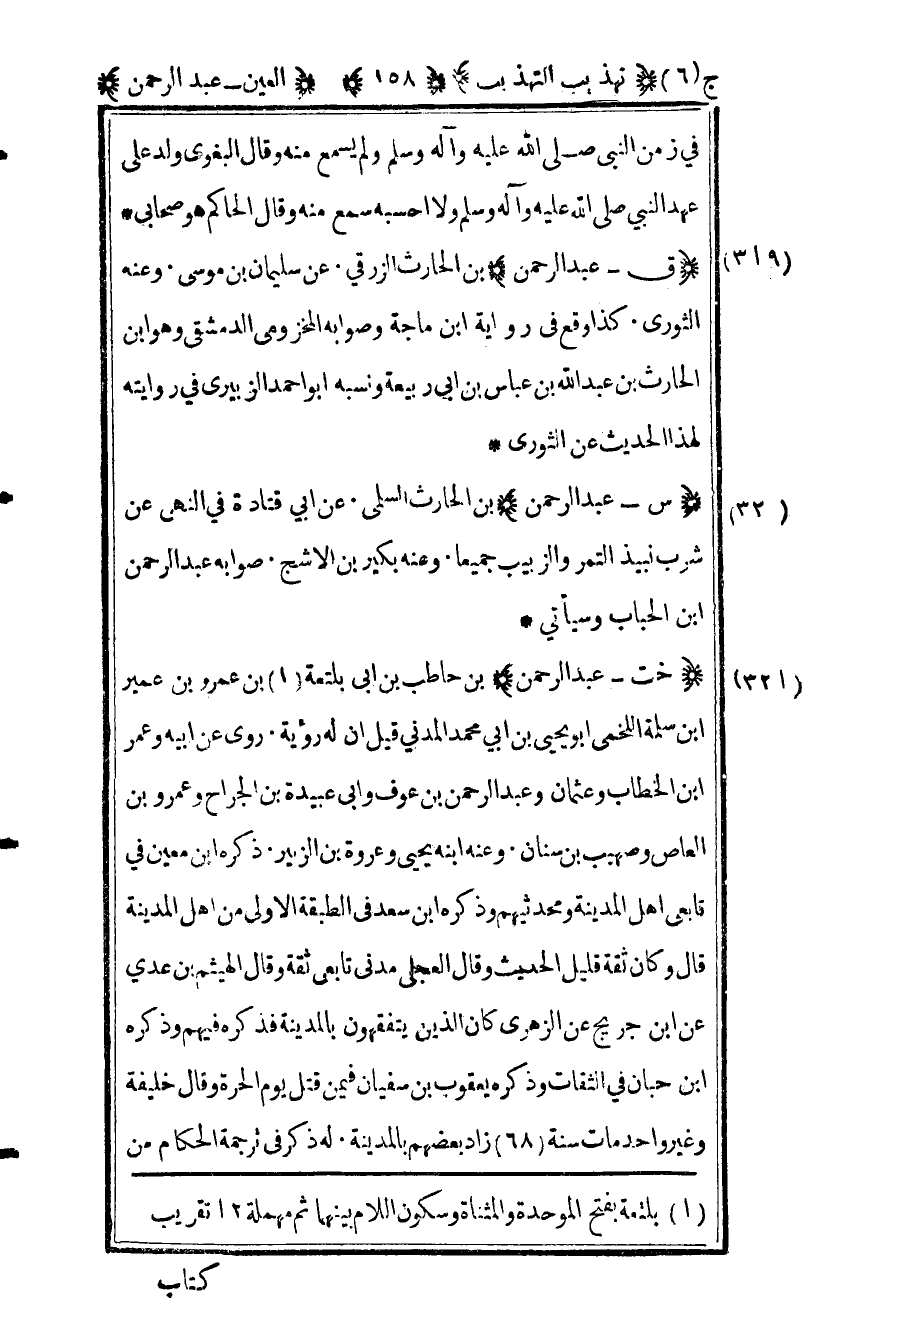 ج (٦) ﴿ تهذيب التهذيب ﴾ ﴿ ١٥٨ ﴾ ﴿ العين ـ عبد الرحمن ﴾
في زمن النبي صلى الله عليه وآله وسلم ولم يسمع منه وقال البغوى ولد على
عهد النبي صلى الله عليه وآله وسلم ولا احسبه سمع منه وقال الحاكم هو صحابي *
(٣١٩) ﴿ ق ـ عبد الرحمن ﴾ بن الحارث الزرقي · عن سليمان بن موسى · وعنه
الثورى · كذا وقع فى رواية ابن ماجة وصوابه المخزومى الدمشقى وهو ابن
الحارث بن عبد الله بن عباس بن ابي ربيعة ونسبه ابو احمد الزبيرى في روايته
لهذا الحديث عن الثورى *
(٣٢) ﴿ س ـ عبد الرحمن ﴾ بن الحارث السلمى · عن ابي قتادة في النهى عن
شرب نبيذ التمر والزبيب جميعا · وعنه بكير بن الاشج · صوابه عبد الرحمن
ابن الحباب وسيأتي *
(٣٢١) ﴿ خت ـ عبد الرحمن ﴾ بن حاطب بن ابى بلتعة (١) بن عمرو بن عمير
ابن سلمة اللخمى ابو يحيى بن ابي محمد المدني قيل ان له رؤية · روى عن ابيه وعمر
ابن الخطاب وعثمان وعبد الرحمن بن عوف وابى عبيدة بن الجراح وعمرو بن
العاص وصهيب بن سنان · وعنه ابنه يحيى وعروة بن الزبير · ذكره ابن معين في
تابعى اهل المدينة ومحدثيهم وذكره ابن سعد فى الطبقة الاولى من اهل المدينة
قال وكان ثقة قليل الحديث وقال العجلى مدنى تابعى ثقة وقال الهيثم بن عدي
عن ابن جريج عن الزهرى كان الذين يتفقهون بالمدينة فذكره فيهم وذكره
ابن حبان في الثقات وذكره يعقوب بن سفيان فيمن قتل يوم الحرة وقال خليفة
وغير واحد مات سنة (٦٨) زاد بعضهم بالمدينة · له ذكر فى ترجمة الحكام من
(١) بلتعة بفتح الموحدة والمثناة وسكون اللام بينهما ثم مهملة ١٢ تقريب
كتاب